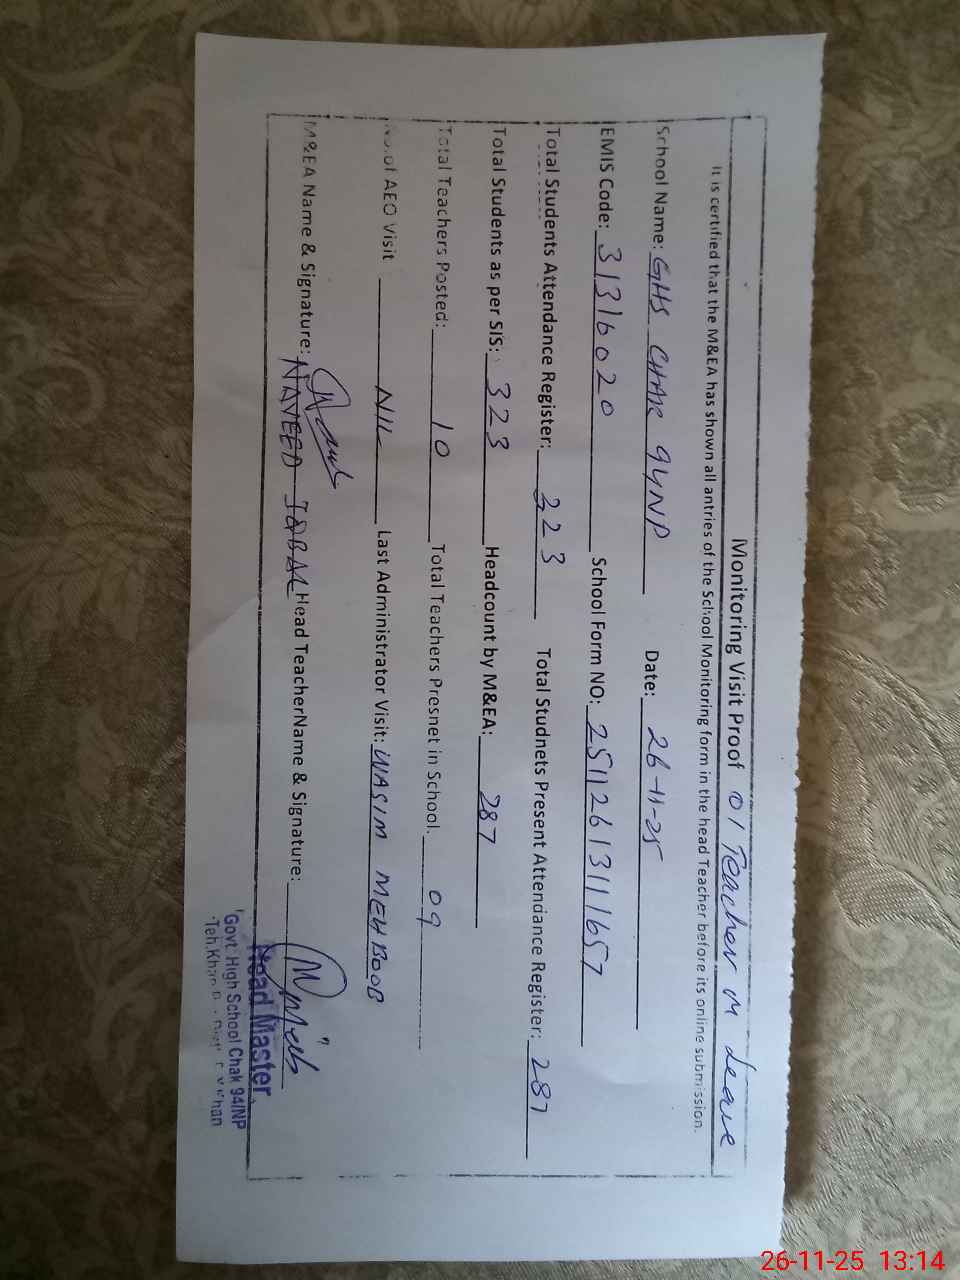 Monitoring Visit Proof 01 Teacher on Leave
It is certified that the M&EA has shown all antries of the School Monitoring form in the head Teacher before its online submission.
School Name: GHS CHAK 94NP Date: 26-11-25
EMIS Code: 31316020 School Form NO: 25112613111657
Total Students Attendance Register: 323 Total Studnets Present Attendance Register: 287
Total Students as per SIS: 323 Headcount by M&EA: 287
Total Teachers Posted: 10 Total Teachers Presnet in School. 09
No.of AEO Visit NIL Last Administrator Visit: WASIM MEHBOOB
M&EA Name & Signature: NAVEED IQBAL Head TeacherName & Signature:
Head Master
Govt. High School Chak 94/NP
Teh. Khan
26-11-25 13:14